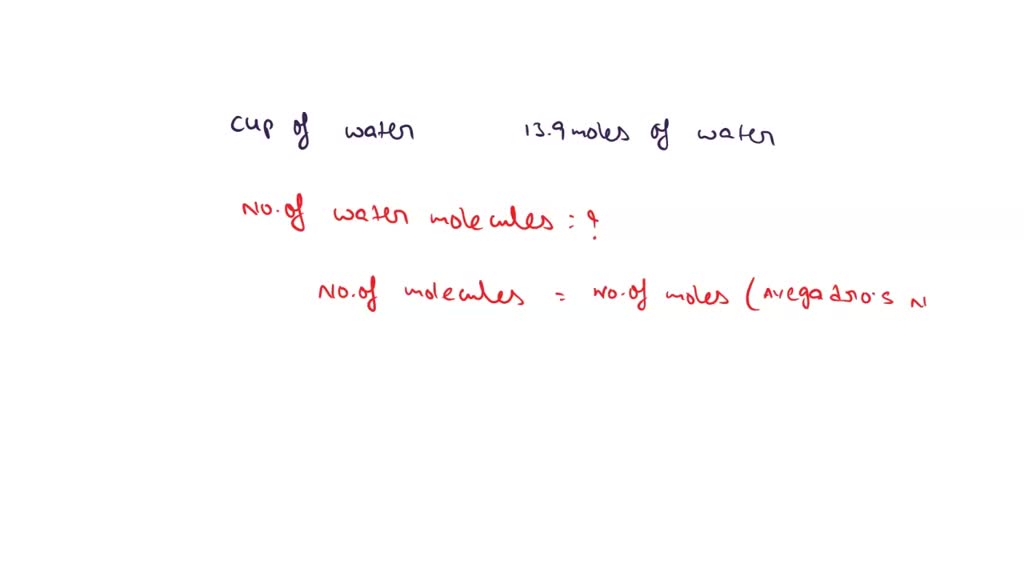 cup of water 13.9 moles of water
No. of water molecules = ?
No. of molecules = No. of moles (Avegadro's N